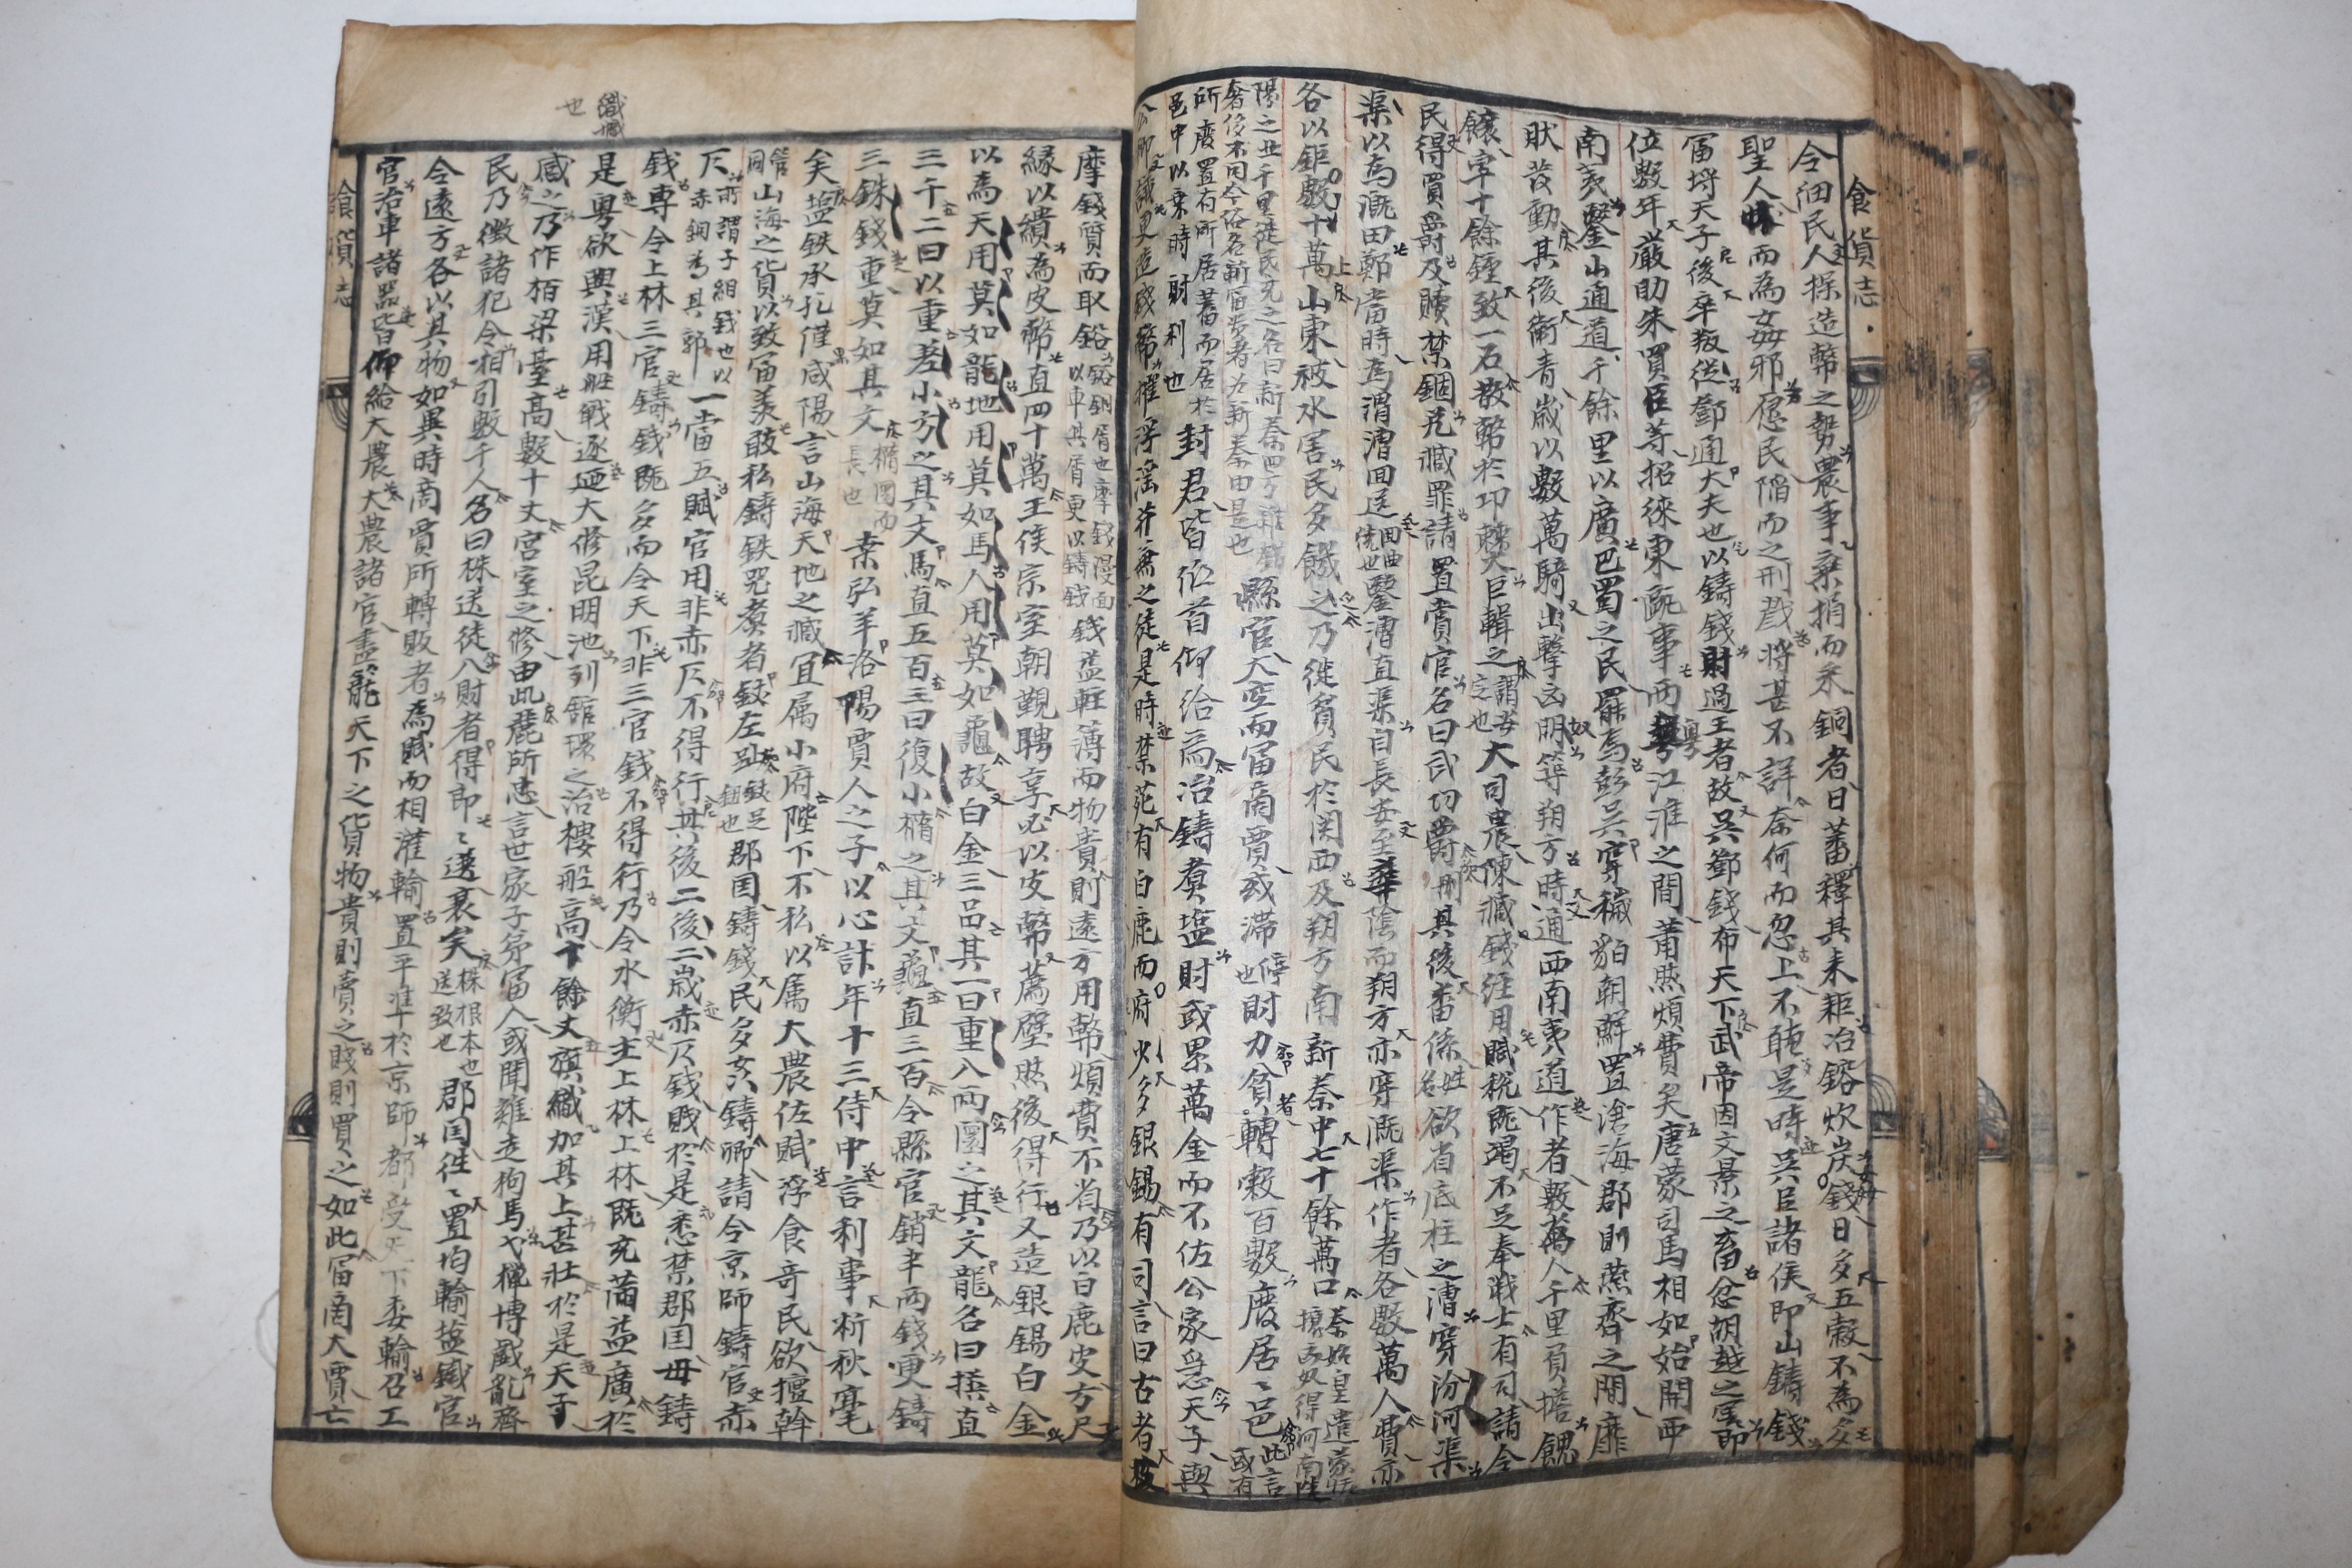 食貨志
今細民人操造幣之勢農事棄捐而釆銅者日蕃釋其耒耜冶鎔炊炭錢日多五穀不為多
聖人 而為姦邪愿民陷而之刑戮將甚不詳奈何而忽上不聽是時吳臣諸侯即山鑄錢
富埒天子後卒叛逆鄧通大夫也以鑄錢財過王者故吳鄧錢布天下武帝因文景之畜忿胡越之害即
位數年嚴助朱買臣等招徠東甌事兩粤江淮之間蕭然煩費矣唐蒙司馬相如始開西
南夷鑿山通道千餘里以廣巴蜀之民罷焉彭吳穿穢貊朝鮮置滄海郡則燕齊之間靡
然發動其後衛青歲以數萬騎出擊匈奴明等朔方時通西南夷道作者數萬人千里負擔餽
饟率十餘鍾致一石散幣於邛僰大巨輯之謂安定也大司農陳臧錢經用賦稅既竭不足奉戰士有司請令
民得買爵及贖禁錮免臧罪請置賞官名曰武功爵刪其後番係姓名欲省底柱之漕穿汾河渠
渠以為溉田鄭當時為渭漕回遠回曲繞也鑿漕直渠自長安至華陰而朔方亦穿溉渠作者各數萬人費亦
各以鉅數十萬山東被水害民多饑之乃徙貧民於関西及朔方南新秦中七十餘萬口秦始皇遣蒙恬攘匈奴得河南陸
陽之北千里徙民充之名曰新秦四方雜錯奢侈不同今俗名新富貴者为新秦由是也縣官大空而富商賈或滯停也財力貧者轉穀百數廢居〻邑此言或有
所廢置有所居蓄而居於邑中以乘時財利也封君皆低首仰給焉冶鑄煑塩財或累萬金而不佐公家急天子與
公卿議更造錢幣摧浮淫并兼之徒是時禁苑有白鹿而府火多銀錫有司言曰古者皮
織幟也
摩錢質而取鉛鉛銅屑也摩錢漫面以車其屑更以鑄錢錢益輕薄而物貴則遠方用幣煩費不省乃以白鹿皮方尺
緣以繢為皮幣直四十萬王侯宗室朝覲聘享必以皮幣薦璧然後得行又造銀錫白金
以為天用莫如龍地用莫如馬人用莫如龜故白金三品其一曰重八兩圜之其文龍名曰撰直
三千二曰以重差小方之其文馬直五百三曰復小橢之其文龜直三百令縣官銷半兩錢更鑄
三銖錢重莫如其文橢圜而長也桒弘羊洛陽賈人之子以心計年十三侍中言利事析秋毫
矣塩鉄承孔僅咸陽言山海天地之臧冝属小府陛下不私以属大農佐賦浮食奇民欲擅斡
管同山海之貨以致富羡敢私鑄鉄器煑者釱左趾釱足鉗也郡国鑄錢民多姦鑄卿請令京師鑄官赤
仄所謂子紺錢也以赤銅为其郭一當五賦官用非赤仄不得行其後二歲赤仄錢賎於是悉禁郡国毋鑄
錢專令上林三官鑄錢既多而令天下非三官錢不得行乃令水衡主上林上林既充滿益廣於
是粤欲與漢用舡戰逐迺大修昆明池列舘環之治樓舡高十餘丈旗織加其上甚壯於是天子
感之乃作栢梁臺高數十丈宮室之修由此麗所忠言世家子弟冨人或鬪雞走狗馬弋獵博戲乱齊
民乃徴諸犯令相引數千人名曰株送徒入財者得即〻選衰矣株根本也送致也郡国往〻置均輸塩鐵官
令遠方各以其物如異時商賈所轉販者為賦而相灌輸置平準於京師都受天下委輸召工
官治車諸器皆仰給大農大農諸官盡籠天下之貨物貴則賣之賎則買之如此富商大賈亡
食貨志